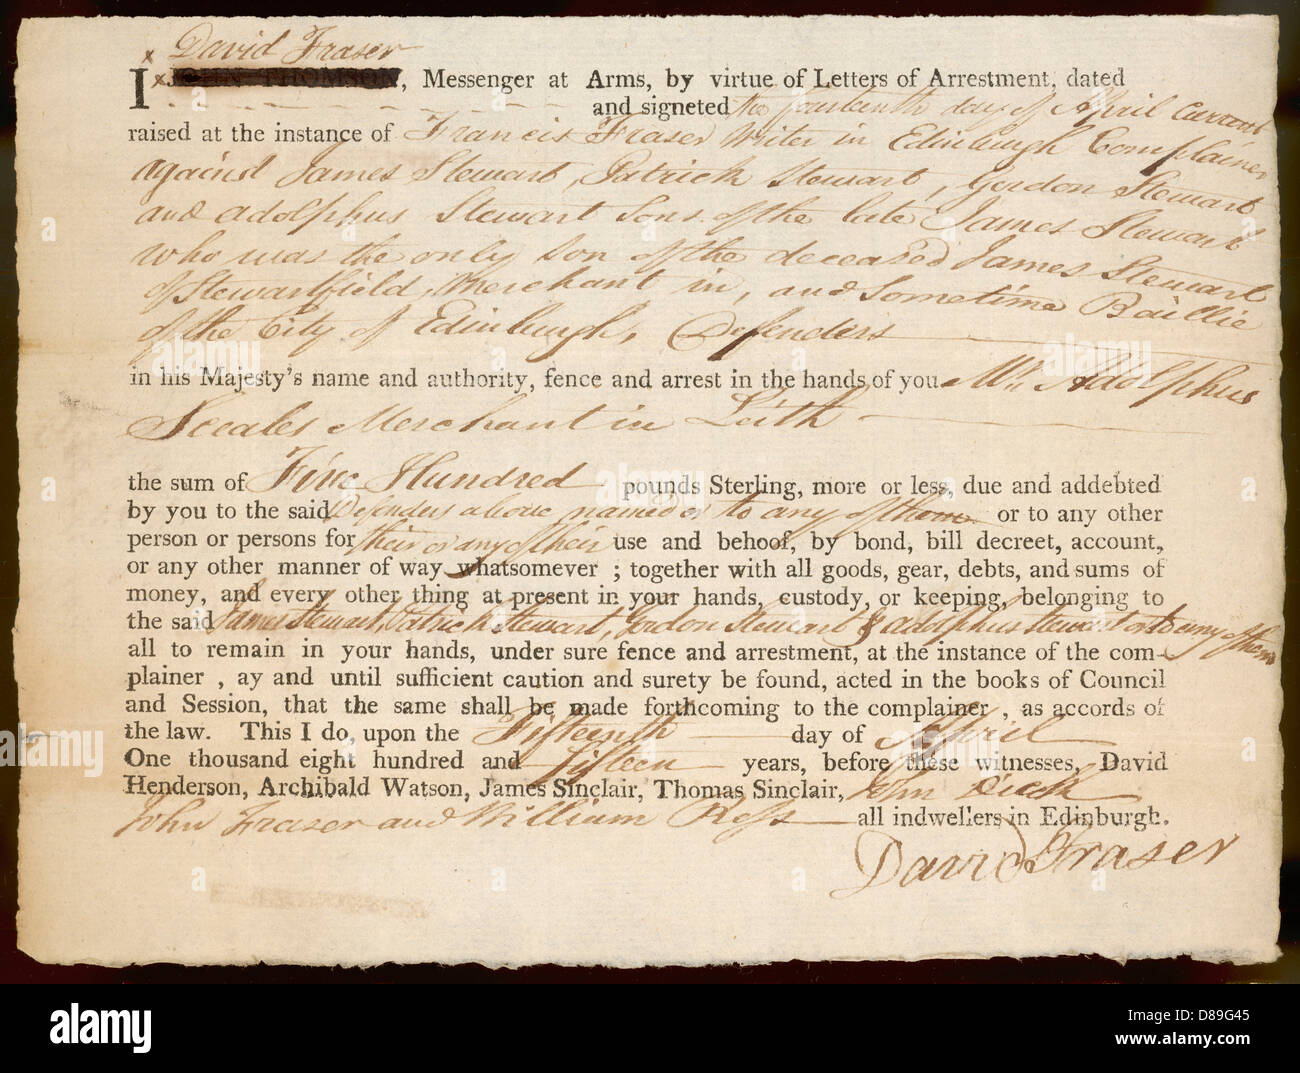 x David Fraser
I x JOHN THOMSON, Messenger at Arms, by virtue of Letters of Arrestment, dated
and signeted the fourteenth day of April Current
raised at the instance of Francis Fraser Writer in Edinburgh Complainer
against James Stewart, Patrick Stewart, Gordon Stewart
and Adolphus Stewart Sons of the late James Stewart
who was the only Son of the deceased James Stewart
of Stewartfield, Merchant in, and Sometime Baillie
of the City of Edinburgh, Defenders
in his Majesty's name and authority, fence and arrest in the hands of you Mr. Adolphus
Sceales Merchant in Leith
the sum of Five Hundred pounds Sterling, more or less, due and addebted
by you to the said Defenders above named or to any of them or to any other
person or persons for their or any of their use and behoof, by bond, bill decreet, account,
or any other manner of way whatsomever ; together with all goods, gear, debts, and sums of
money, and every other thing at present in your hands, custody, or keeping, belonging to
the said James Stewart, Patrick Stewart, Gordon Stewart & Adolphus Stewart or to any of them
all to remain in your hands, under sure fence and arrestment, at the instance of the com-
plainer , ay and until sufficient caution and surety be found, acted in the books of Council
and Session, that the same shall be made forthcoming to the complainer , as accords of
the law. This I do, upon the Fifteenth day of April
One thousand eight hundred and fifteen years, before these witnesses, David
Henderson, Archibald Watson, James Sinclair, Thomas Sinclair, John
John Fraser and William Ross all indwellers in Edinburgh.
David Fraser
alamy
Image ID: D89G45
www.alamy.com